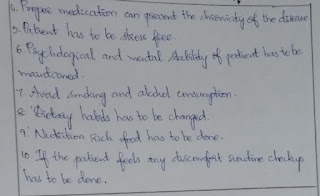 4. Proper medication can prevent the chronicity of the disease
5. Patient has to be stress free
6. Psychological and mental stability of patient has to be
maintained.
7. Avoid smoking and alcohol consumption.
8. Dietary habits has to be changed.
9. Nutrition rich food has to be done.
10. If the patient feels any discomfort routine checkup
has to be done.